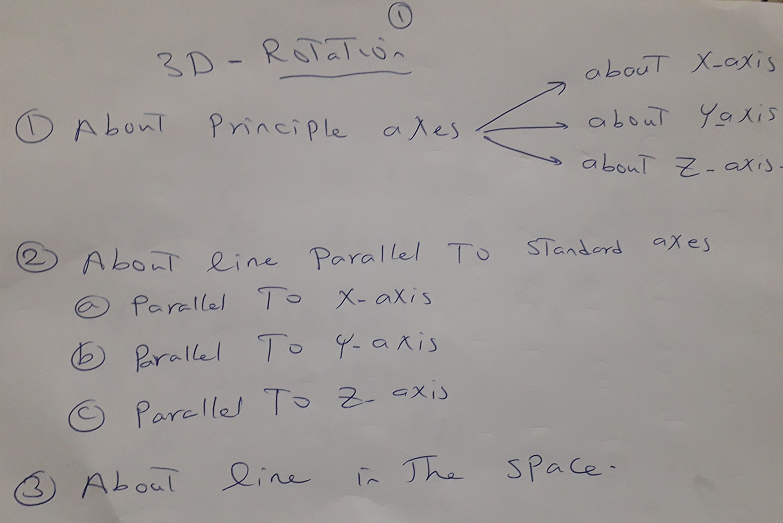 ①
3D - Rotation
about X-axis
① About Principle axes
about Y-axis
about Z-axis.
② About line Parallel To Standard axes
ⓐ Parallel To X-axis
ⓑ Parallel To Y-axis
ⓒ Parallel To Z-axis
③ About line in The space.